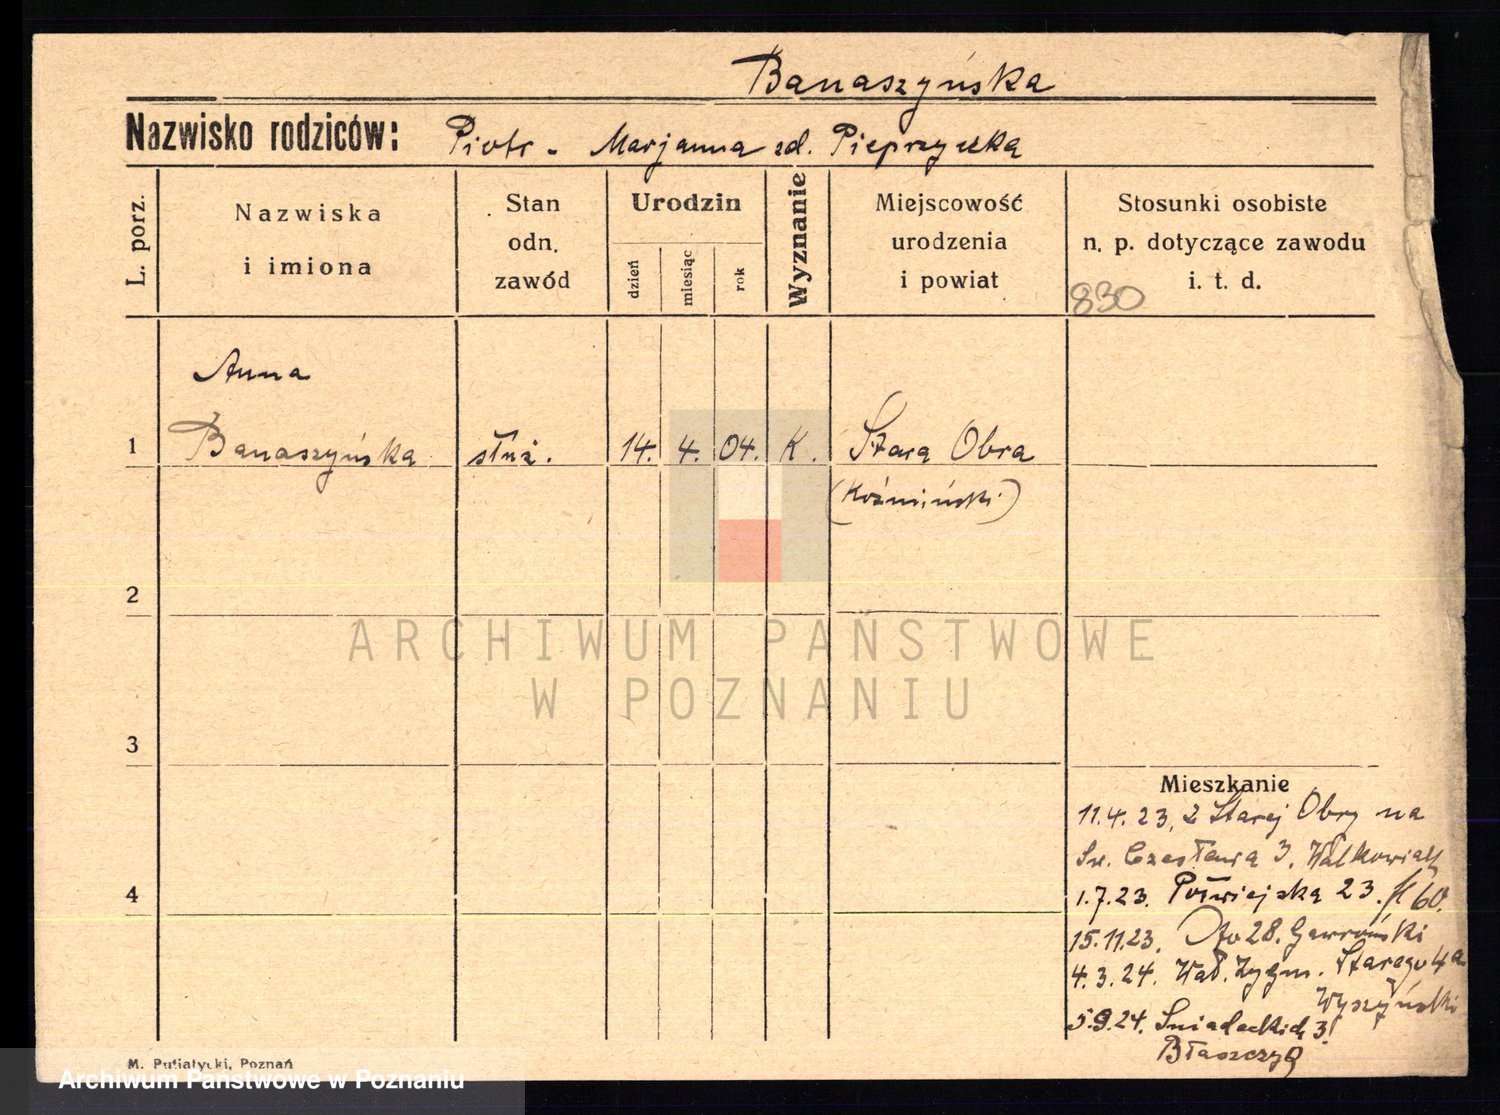 Banaszyńska
Nazwisko rodziców: Piotr - Marjanna zd. Pieprzycka
L. porz.
Nazwiska
i imiona
Stan
odn.
zawód
Urodzin
dzień
miesiąc
rok
Wyznanie
Miejscowość
urodzenia
i powiat
Stosunki osobiste
n. p. dotyczące zawodu
i. t. d.
830
Anna
1 Banaszyńska służ. 14. 4. 04. K. Stara Obra
(Koźmiński)
2
ARCHIWUM PAŃSTWOWE
W POZNANIU
3
Mieszkanie
11.4.23, z Starej Obry na
Św. Czesława 3. Walkowiak
4
1.7.23. Półwiejska 23. 60.
15.11.23. 28. Gawroński
4.3.24. Wał. Zygm. Starego 4a
Wyszyński
5.9.24. Śniadeckich 3.
Błaszczyk
M. Putiatycki, Poznań
Archiwum Państwowe w Poznaniu